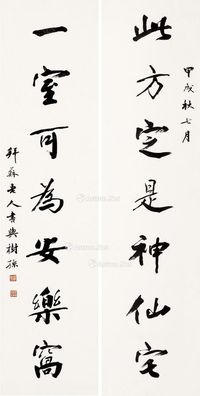 甲戌秋七月
此方定是神仙宅
一室可為安樂窩
拜蘇老人書與樹孫